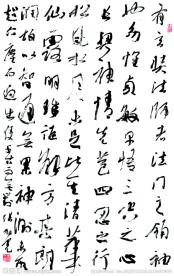 有玄奘法師者法門之領袖
也幼懷貞敏早悟三空之心
長契神情先苞四忍之行
松風水月未足比其清華
仙露明珠詎能方其朗
潤故以智通無累神測未形
超六塵而迥出